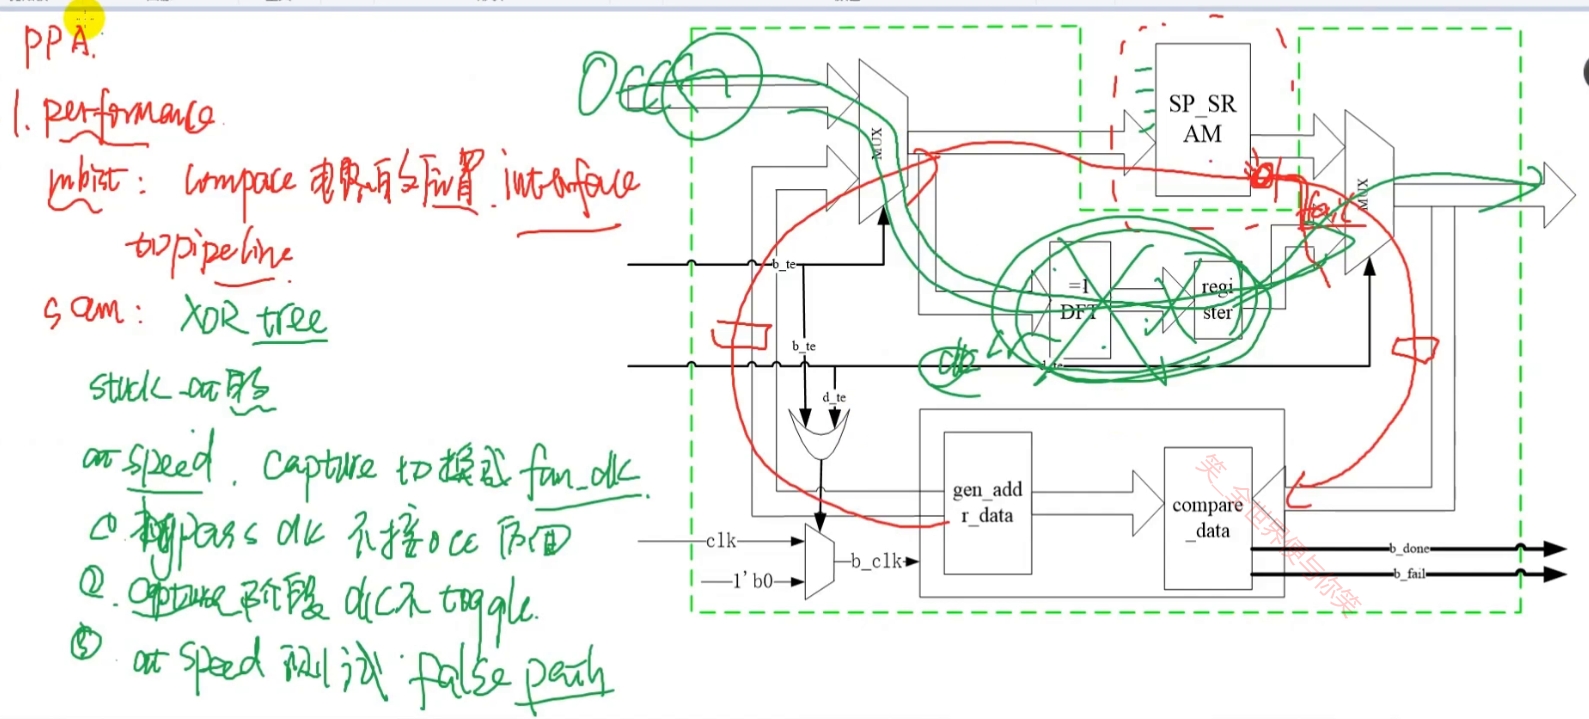 PPA.
1. performance
mbist: compare 电路 后置. interface
to pipeline
scan: XOR tree
stuck-at 的
at speed. capture 切换成 fun_clk.
① bypass clk 不接occ 后面
②. capture 阶段 clk不toggle.
③ at speed 测试 false path
OCC
MUX
SP_SR
AM
MUX
b_te
=1
DFT
regi
ster
b_te
d_te
clk
gen_add
r_data
compare
_data
clk
1'b0
b_clk
b_done
b_fail
笑_全世界便与你笑